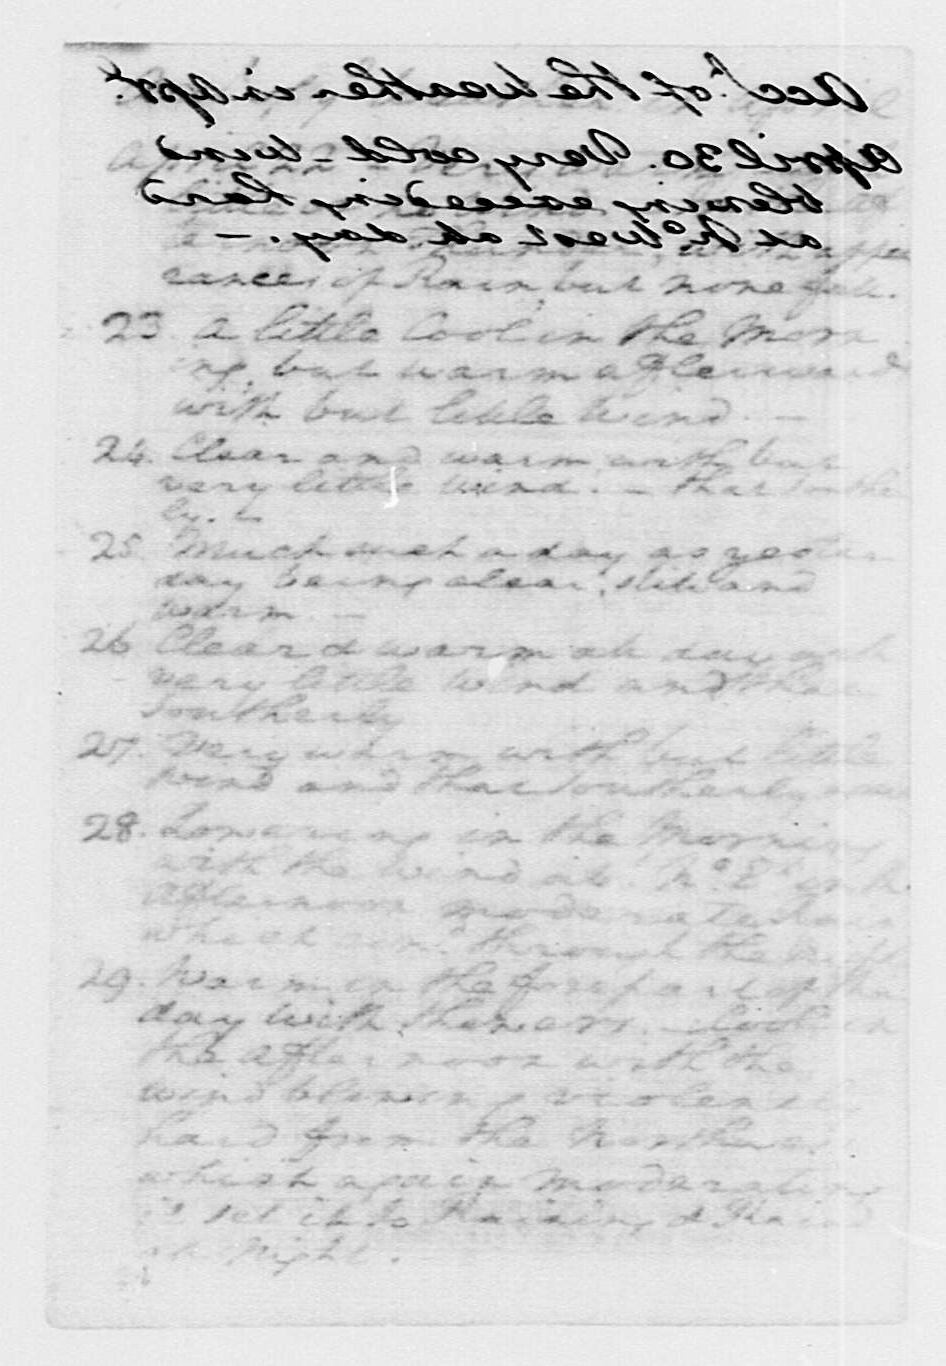 Acct. of the Weather in Apl.
April 30. Very cold - wind
blowing exceeding hard
at No. West all day. —
rances of Rain but none fell.
23. A little Cool in the Morn
ing but warm afterwards
with but little Wind. —
24. Clear and warm with but
very little Wind. — that Southe
ly. —
25. Much such a day as yester
day being clear, still and
warm. —
26 Clear & warm all day with
very little Wind and that
Southerly
27. Very warm with but little
Wind and that Southerly
28. Lowering in the Morning
with the Wind at No. Et. in the
afternoon moderate Rain
which through the Night
29. Warm in the forepart of the
day with Showers. Cool in
the Afternoon with the
wind blowing violently
hard from the Northwest
which again moderating
it set in to Raining & Rain
at Night.